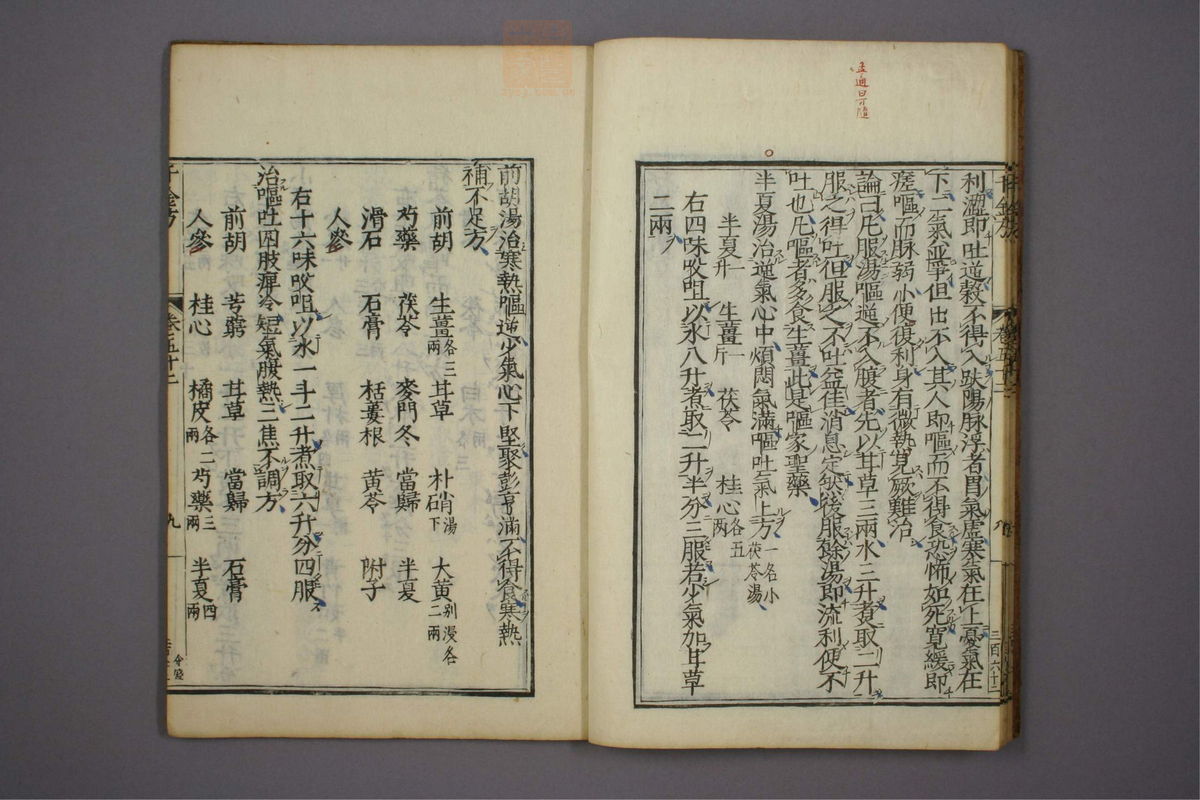 孟
利澀即吐逆穀不得入趺陽脉浮者胃氣虛寒氣在上憂氣在
下二氣並爭但出不入其人即嘔而不得食恐怖如死寬緩即
瘥嘔而脉弱小便復利身有微熱見厥難治
論曰凡服湯嘔逆不入腹者先以甘草三兩水三升煮取二升
服之得吐但服之不吐益佳消息定然後服餘湯即流利便不
吐也凡嘔者多食生薑此是嘔家聖藥
半夏湯治逆氣心中煩悶氣滿嘔吐氣上方一名小茯苓湯
半夏一升 生薑一斤 茯苓 桂心各五兩
右四味㕮咀以水八升煮取二升半分三服若少氣加甘草
二兩
三百六十二
前胡湯治寒熱嘔逆少氣心下堅聚彭亨滿不得食寒熱
補不足方
前胡 生薑各三兩 甘草 朴硝湯下 大黃別浸各二兩
芍藥 茯苓 麥門冬 當歸 半夏
滑石 石膏 栝蔞根 黃芩 附子
人參
右十六味㕮咀以水一斗二升煮取六升分四服
治嘔吐四肢痺冷短氣腹熱三焦不調方
前胡 芎藭 甘草 當歸 石膏
人參 桂心 橘皮各二兩 芍藥三兩 半夏四兩
千金方 卷五十二 九